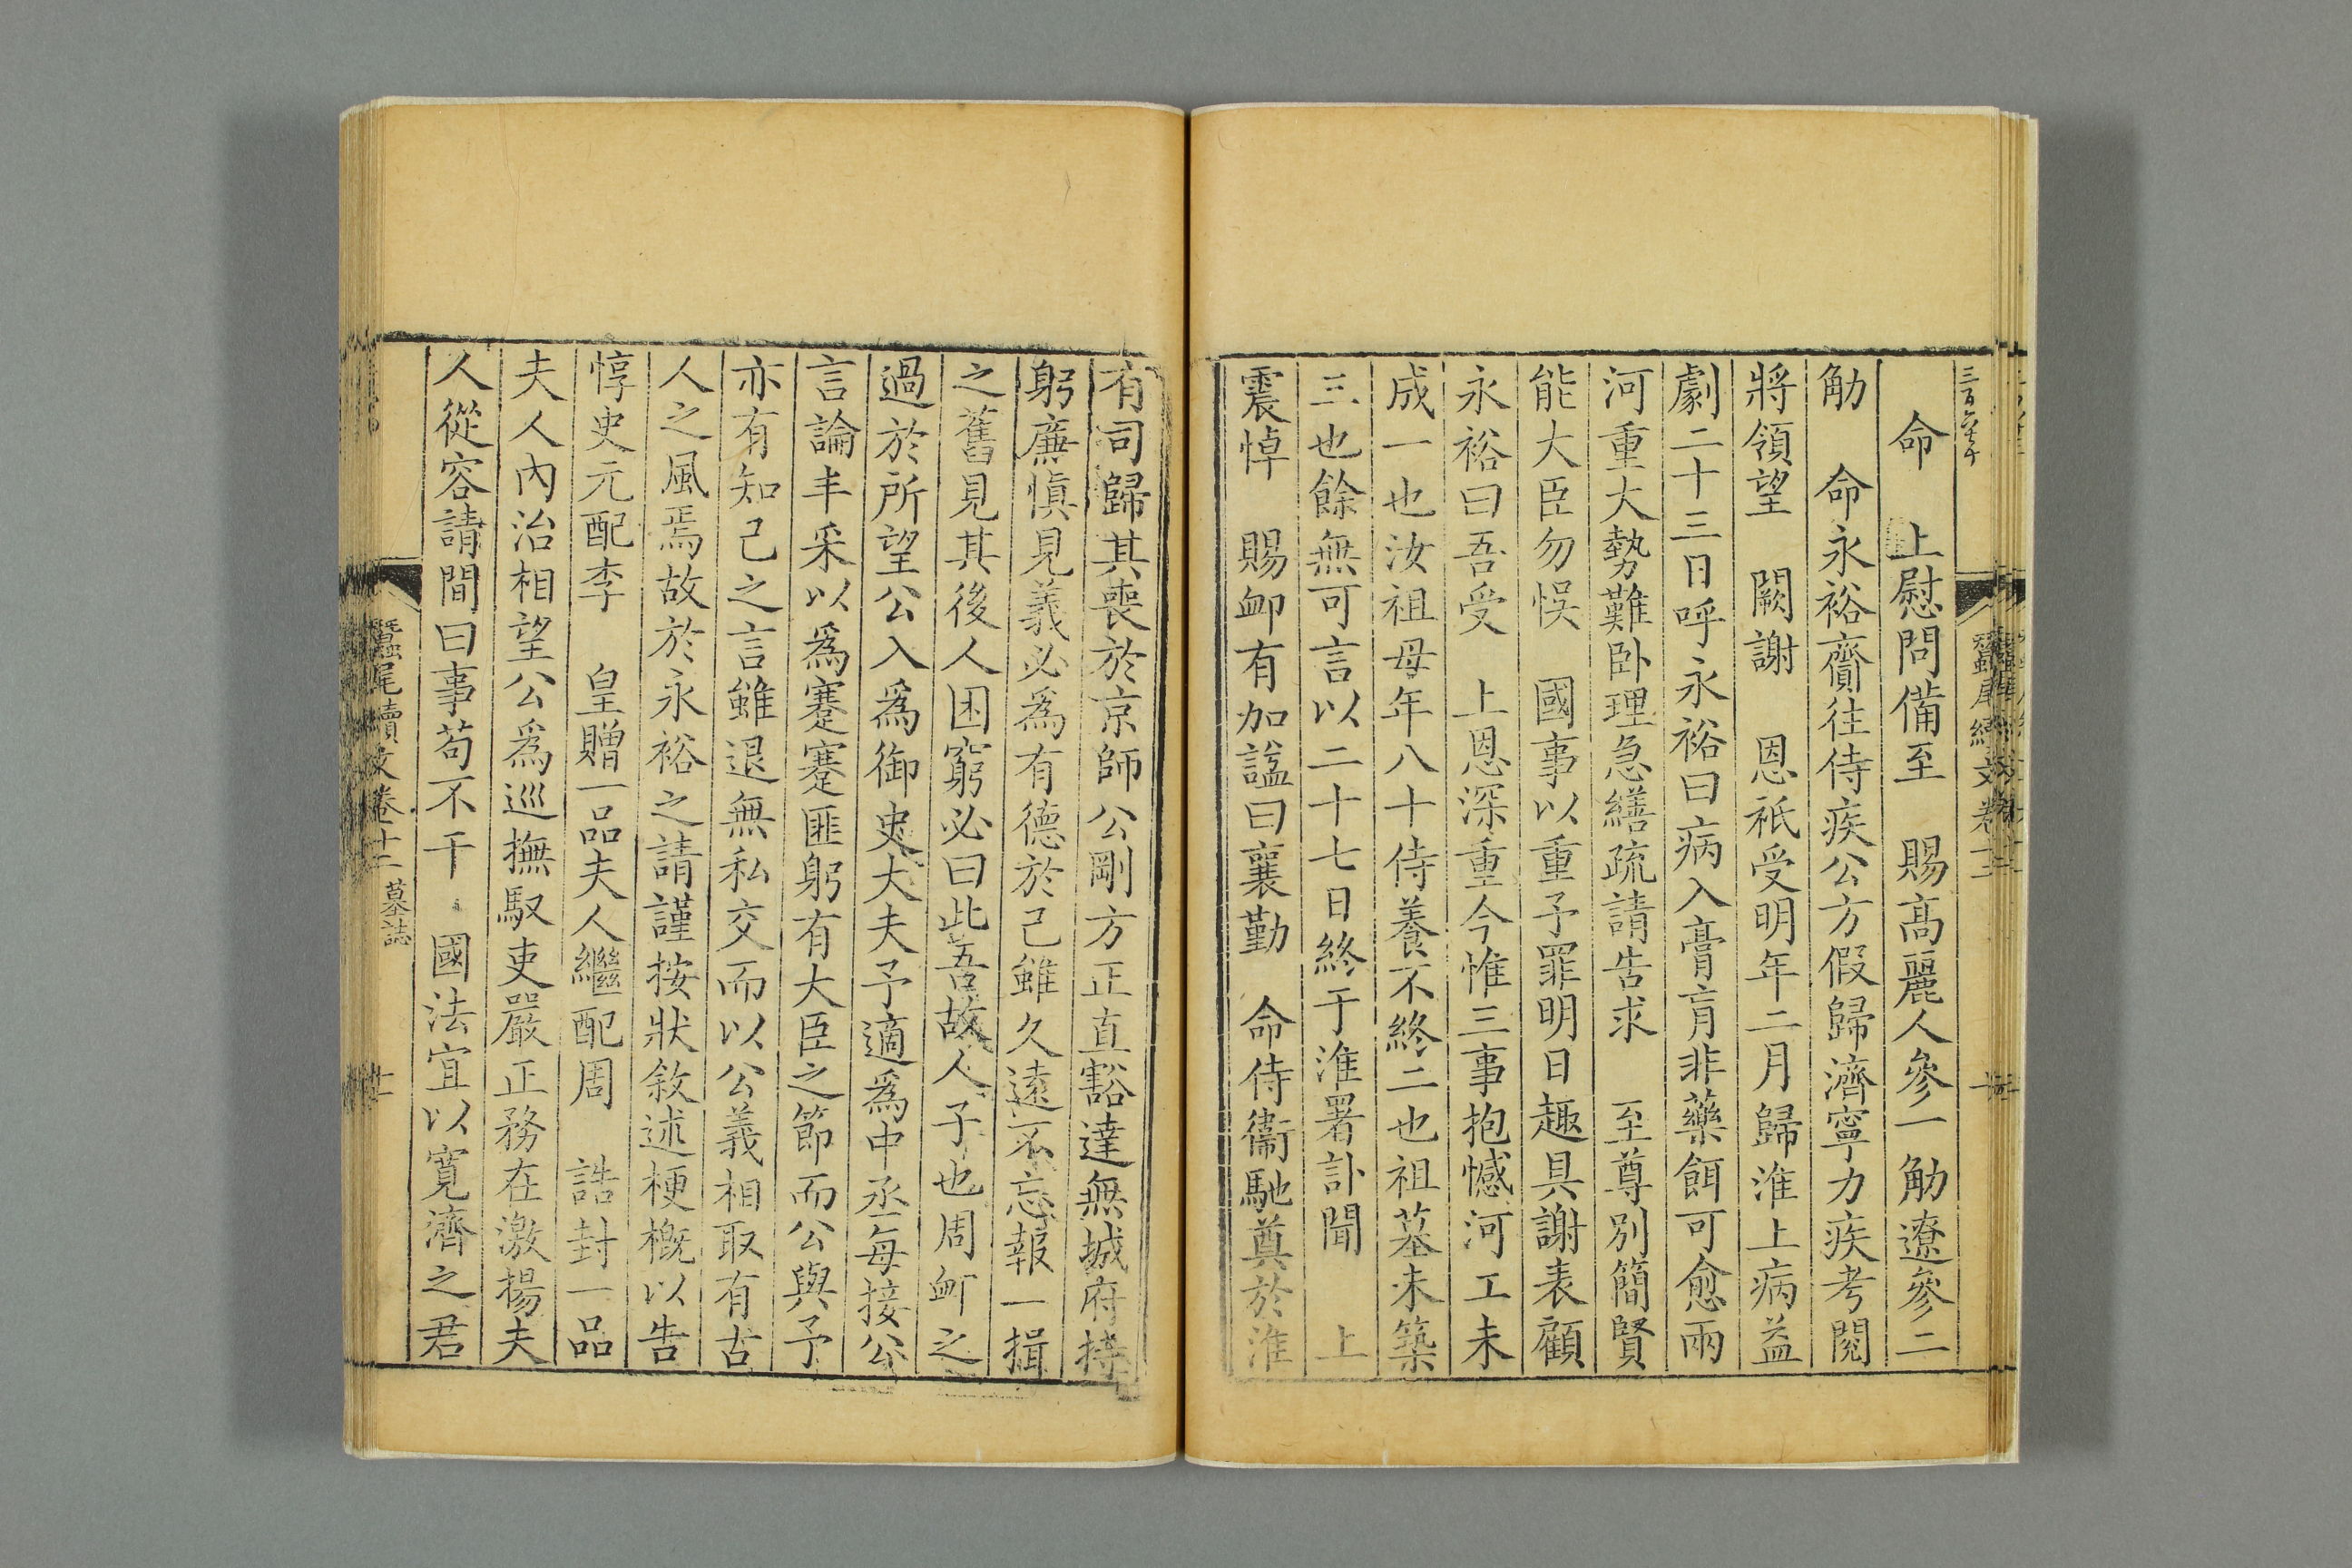 命　上慰問備至　賜高麗人參一觔遼參二
觔　命永裕齎往侍疾公方假歸濟寧力疾考閱
將領望　闕謝　恩祗受明年二月歸淮上病益
劇二十三日呼永裕曰病入膏肓非藥餌可愈兩
河重大勢難卧理急繕疏請告求　至尊別簡賢
能大臣勿悞　國事以重予罪明日趣具謝表顧
永裕曰吾受　上恩深重今惟三事抱憾河工未
成一也汝祖母年八十侍養不終二也祖墓未築
三也餘無可言以二十七日終于淮署訃聞　上
震悼　賜卹有加諡曰襄勤　命侍衞馳奠於淮
有司歸其喪於京師公剛方正直豁達無城府持
躬廉愼見義必爲有德於己雖久遠不忘報一揖
之舊見其後人困窮必曰此吾故人子也周卹之
過於所望公入爲御史大夫予適爲中丞每接公
言論丰采以爲蹇蹇匪躬有大臣之節而公與予
亦有知己之言雖退無私交而以公義相取有古
人之風焉故於永裕之請謹按狀敘述梗槪以告
惇史元配李　皇贈一品夫人繼配周　誥封一品
夫人內治相望公爲巡撫馭吏嚴正務在激揚夫
人從容請間曰事苟不干　國法宜以寬濟之君
蠶尾續文卷十二　墓誌